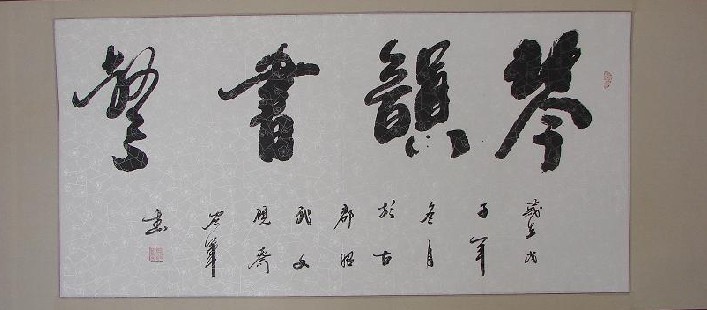 琴韻書聲
歲在戊
子年
冬月
於古
郡昭
武文
硯齋
書